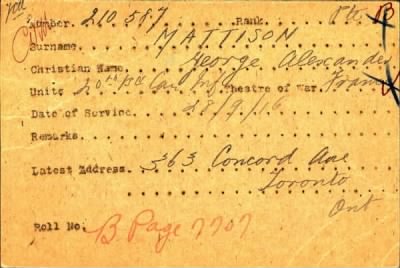 Number. 210587 Rank. Pte B
Surname. MATTISON
Christian Name. George Alexander
Unit: 20th Bn Can Inf Theatre of War. France
Date of Service. 28/9/16
Remarks.
Latest Address. 363 Concord Ave
Toronto
Ont
Roll No. B Page 7707